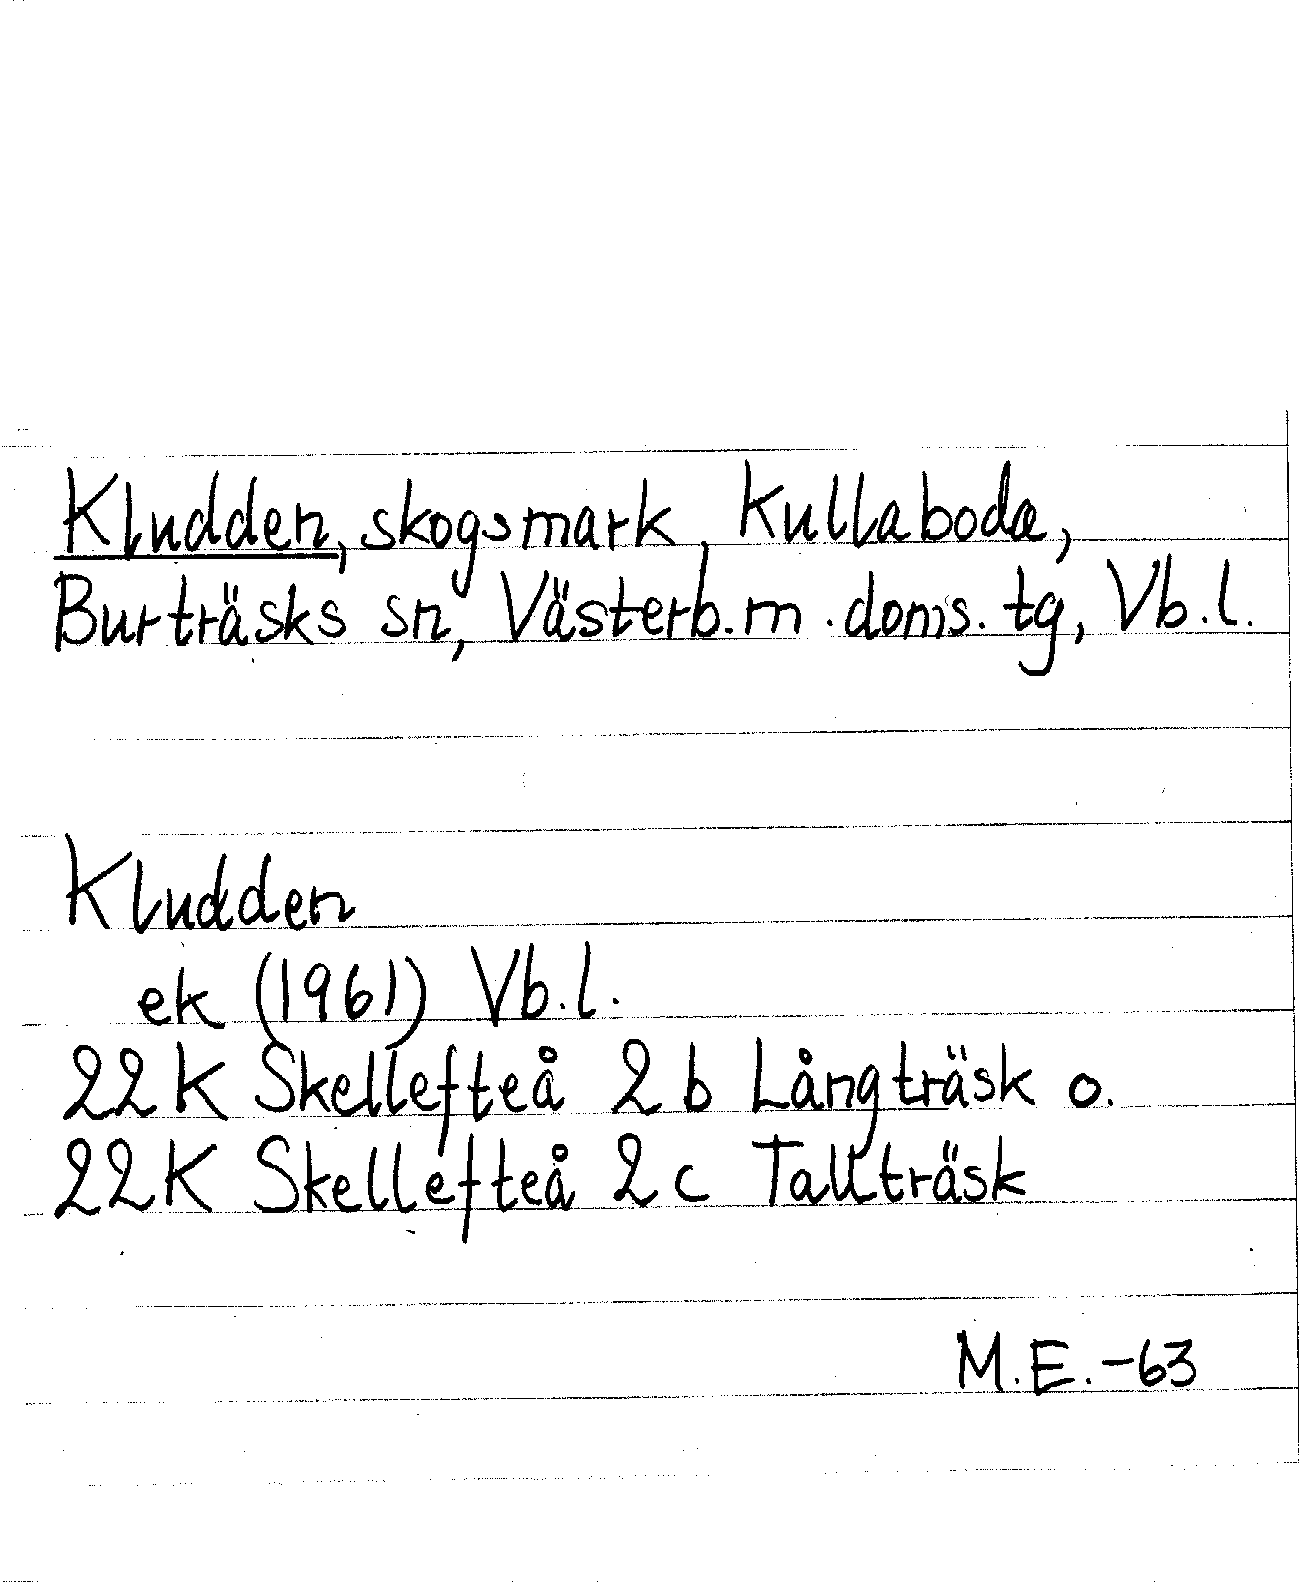 Kludden, skogsmark, Kullaboda,
Burträsks sn, Västerb.m. doms. tg, Vb.l.
Kludden
ek (1961) Vb.l.
22K Skellefteå 2 b Långträsk o.
22K Skellefteå 2 c Tallträsk
M.E.-63